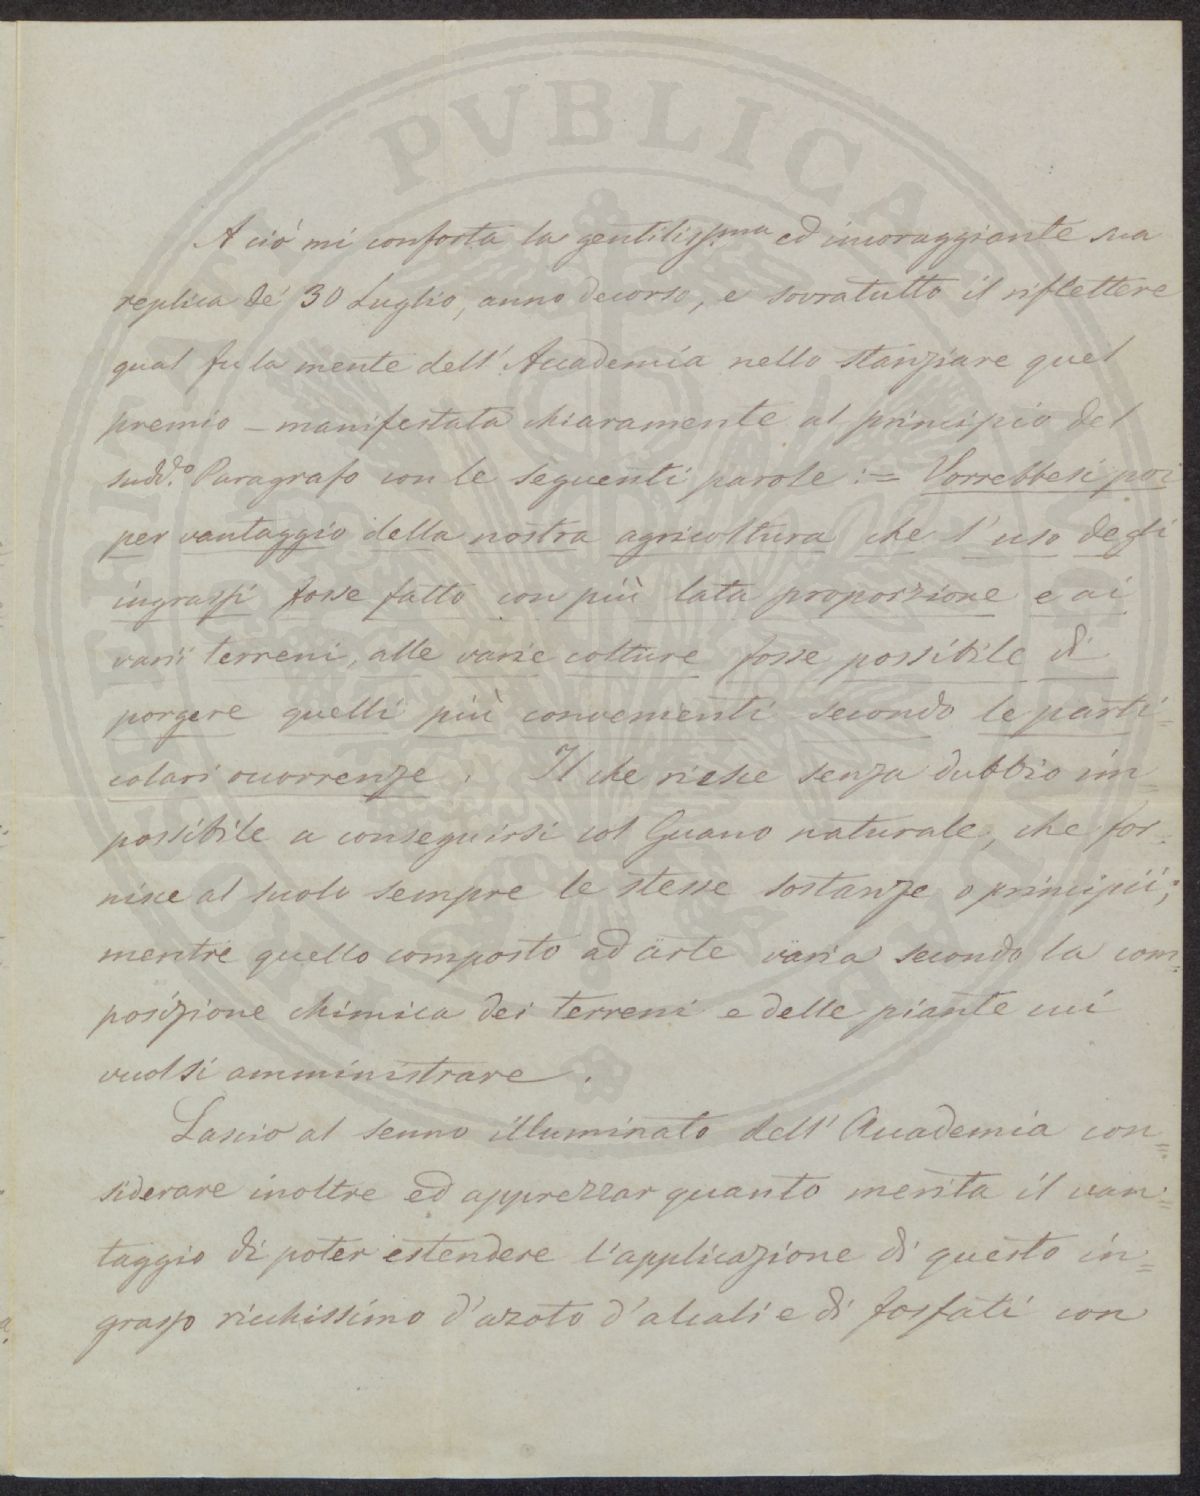 A ciò mi conforta la gentilissma ed incoraggiante sua
replica de' 30 Luglio, anno decorso, e sovratutto il riflettere
qual fu la mente dell' Accademia nello stanziare quel
premio – manifestata chiaramente al principio del
sudd.o Paragrafo con le seguenti parole := Vorrebbesi poi
per vantaggio della nostra agricoltura che l' uso degli
ingrassi fosse fatto con più lata proporzione e ai
varii terreni, alle varie colture fosse possibile di
porgere quelli più convenienti secondo le parti=
colari ocorrenze. Il che riesce senza dubbio im=
possibile a conseguirsi col Guano naturale, che for=
nisce al suolo sempre le stesse sostanze o principii;
mentre quello composto ad arte varia secondo la com=
posizione chimica dei terreni e delle piante cui
vuolsi amministrare.
Lascio al senno illuminato dell' Accademia con=
siderare inoltre ed apprezzar quanto merita il van=
taggio di poter estendere l'applicazione di questo in=
grasso ricchissimo d'azoto d'alcali e di fosfati con
PVBLICAE